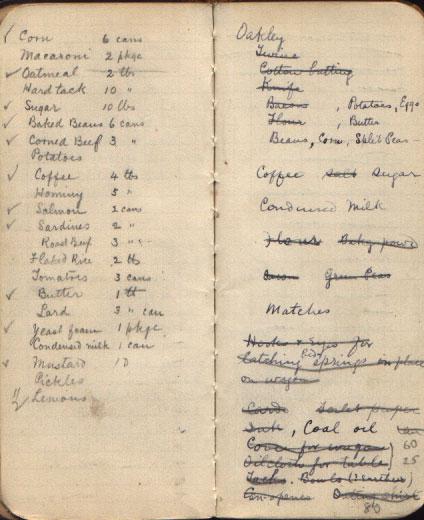 Corn 6 cans
Macaroni 2 pkge
Oatmeal 2 lbs
Hard tack 10 "
Sugar 10 lbs
Baked Beans 6 cans
Corned Beef 3 "
Potatoes
Coffee 4 lbs
Hominy 5 "
Salmon 2 cans
Sardines 2 "
Roast Beef 3 " "
Flaked Rice 2 lb
Tomatoes 3 cans
Butter 1 lb
Lard 3 " can
Yeast foam 1 pkge
Condensed milk 1 can
Mustard 1 D
Pickles
1/2 Lemons
Oakley
Twine
Cotton batting
Knife
Bacon, Potatoes, Eggs
Flour, Butter
Beans, Corn, Split Peas -
Coffee Salt Sugar
Condensed Milk
Flour Baking powd
Bacon Green Peas
Matches
Hooks & Eyes for
latching springs in place
on wagon
Cards Toilet paper
Salt, Coal oil can
Cover for wagon 60
Oil cloth for table 25
Tacks. Bowls
Can opener
80